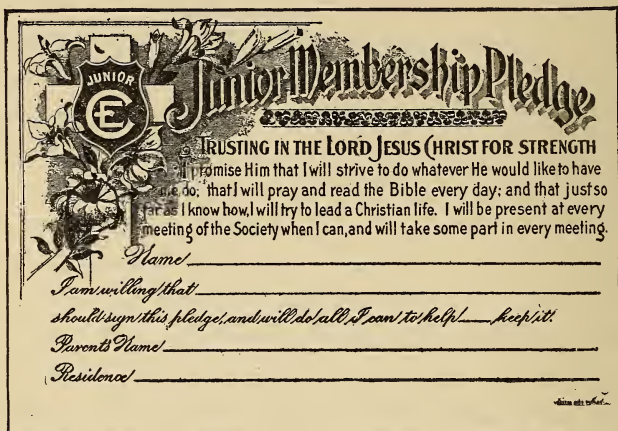 JUNIOR
CE
Junior Membership Pledge
TRUSTING IN THE LORD JESUS CHRIST FOR STRENGTH
I promise Him that I will strive to do whatever He would like to have
me do; that I will pray and read the Bible every day; and that just so
far as I know how, I will try to lead a Christian life. I will be present at every
meeting of the Society when I can, and will take some part in every meeting.
Name
I am willing that
should sign this pledge, and will do all I can to help keep it.
Parent's Name
Residence